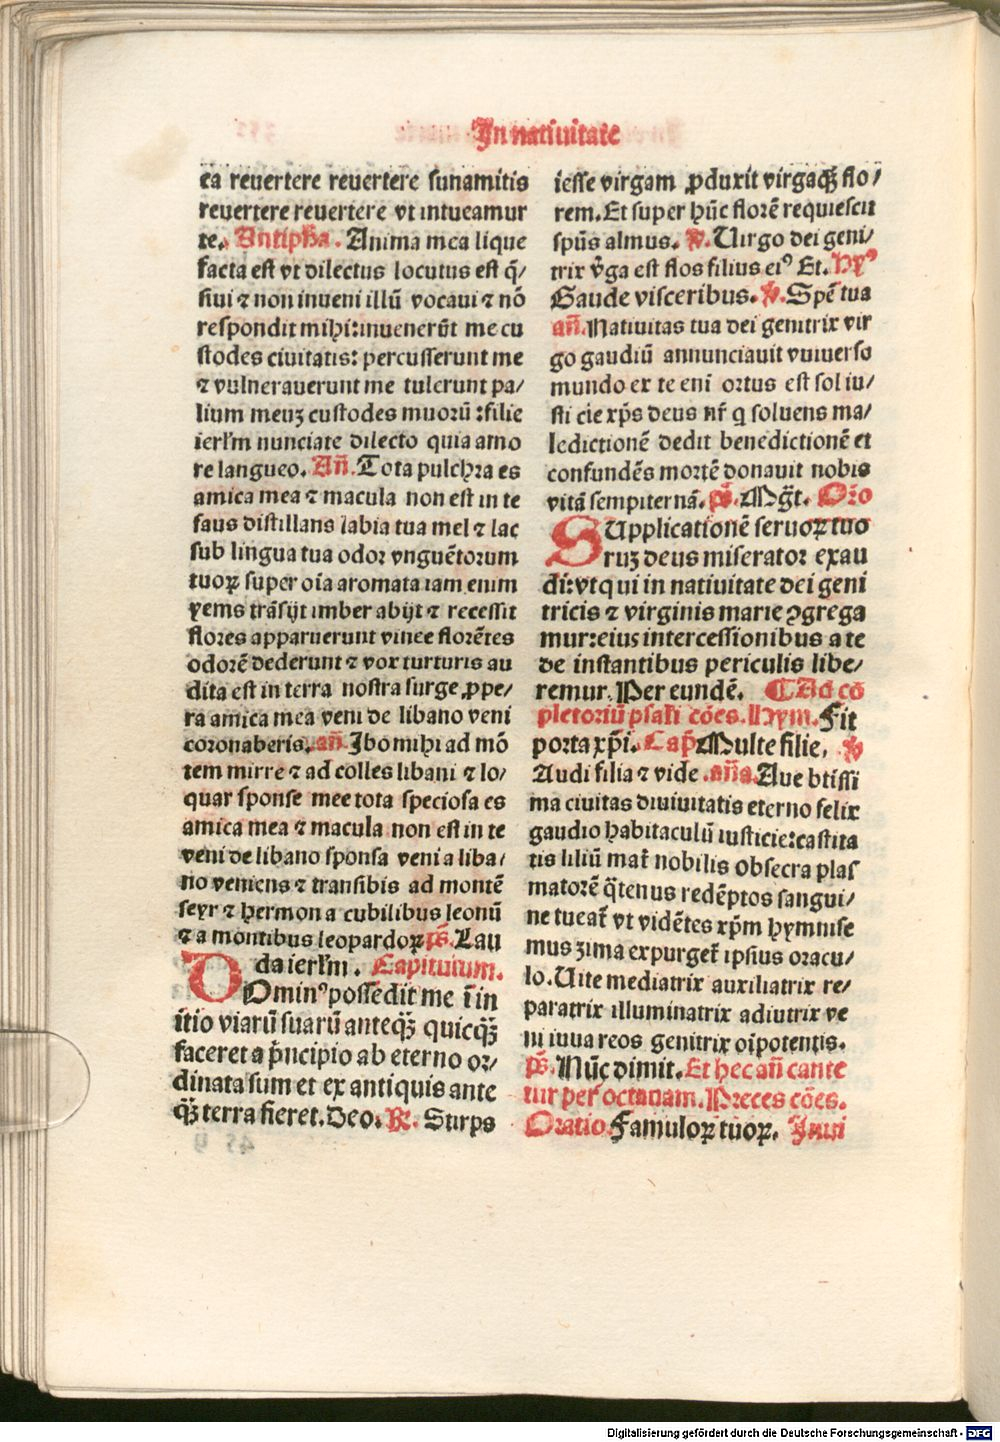 In natiuitate
ea reuertere reuertere sunamitis
reuertere reuertere vt intueamur
te. Antipha. Anima mea lique
facta est vt dilectus locutus est q̄/
siui ⁊ non inueni illū vocaui ⁊ nō
respondit mihi:inuenerūt me cu
stodes ciuitatis: percusserunt me
⁊ vulnerauerunt me tulerunt pa/
lium meuʒ custodes muorū :filie
ierłm nunciate dilecto quia amo
re langueo. Añ. Tota pulchra es
amica mea ⁊ macula non est in te
faus distillans labia tua mel ⁊ lac
sub lingua tua odor vnguētorum
tuoꝝ super oīa aromata iam enim
yems trāsijt imber abijt ⁊ recessit
flores apparuerunt vinee florētes
odorē dederunt ⁊ vox turturis au
dita est in terra nostra surge ꝓpe/
ra amica mea veni de libano veni
coronaberis. añ. Ibo mihi ad mō
tem mirre ⁊ ad colles libani ⁊ lo/
quar sponse mee tota speciosa es
amica mea ⁊ macula non est in te
veni de libano sponsa veni a liba/
no veniens ⁊ transibis ad montē
seyr ⁊ hermon a cubilibus leonū
⁊ a montibus leopardoꝝ p̄s. Lau
da ierłm. Capitulum.
DOmin⁹ possedit me ī in
itio viarū suarū anteq̄ʒ quicq̄ʒ
faceret a p̄ncipio ab eterno or/
dinata sum et ex antiquis ante
q̄ʒ terra fieret. Deo. ℟. Stirps
iesse virgam ꝓduxit virgaqʒ flo/
rem. Et super hūc florē requiescit
spūs almus. ℣. Uirgo dei geni/
trix v̄ga est flos filius ei⁹ Et. Hy⁹
Gaude visceribus. ℣. Spē tua
añ. Natiuitas tua dei genitrix vir
go gaudiū annunciauit vniuerso
mundo ex te enī ortus est sol iu/
sticie xp̄s deus nr̄ q soluens ma/
ledictionē dedit benedictionē et
confundēs mortē donauit nobis
vitā sempiternā. p̄s. Mḡt. Orō
SUpplicationē seruoꝝ tuo
ruʒ deus miserator exau
di: vt qui in natiuitate dei geni
tricis ⁊ virginis marie ꝯgrega
mur:eius intercessionibus a te
de instantibus periculis libe/
remur. Per eundē. ¶ Ad cō
pletoriū psal̄i cōes. Hym. Fit
porta xp̄i. Cap̄ Multe filie. ℣
Audi filia ⁊ vide. aña. Aue btissi
ma ciuitas diuinitatis eterno felix
gaudio habitaculū iusticie:castita
tis liliū mat̄ nobilis obsecra plas
matorē q̄tenus redēptos sangui/
ne tueat̄ vt vidētes xp̄m hymnise
mus zima expurget̄ ipsius oracu/
lo. Uite mediatrix auxiliatrix re/
paratrix illuminatrix adiutrix ve
ni iuua reos genitrix oīpotentis.
p̄s. Nūc dimit. Et hec añ cante
tur per octauam. Preces cōes.
Oratio Famuloꝝ tuoꝝ. Inui
Digitalisierung gefördert durch die Deutsche Forschungsgemeinschaft - DFG